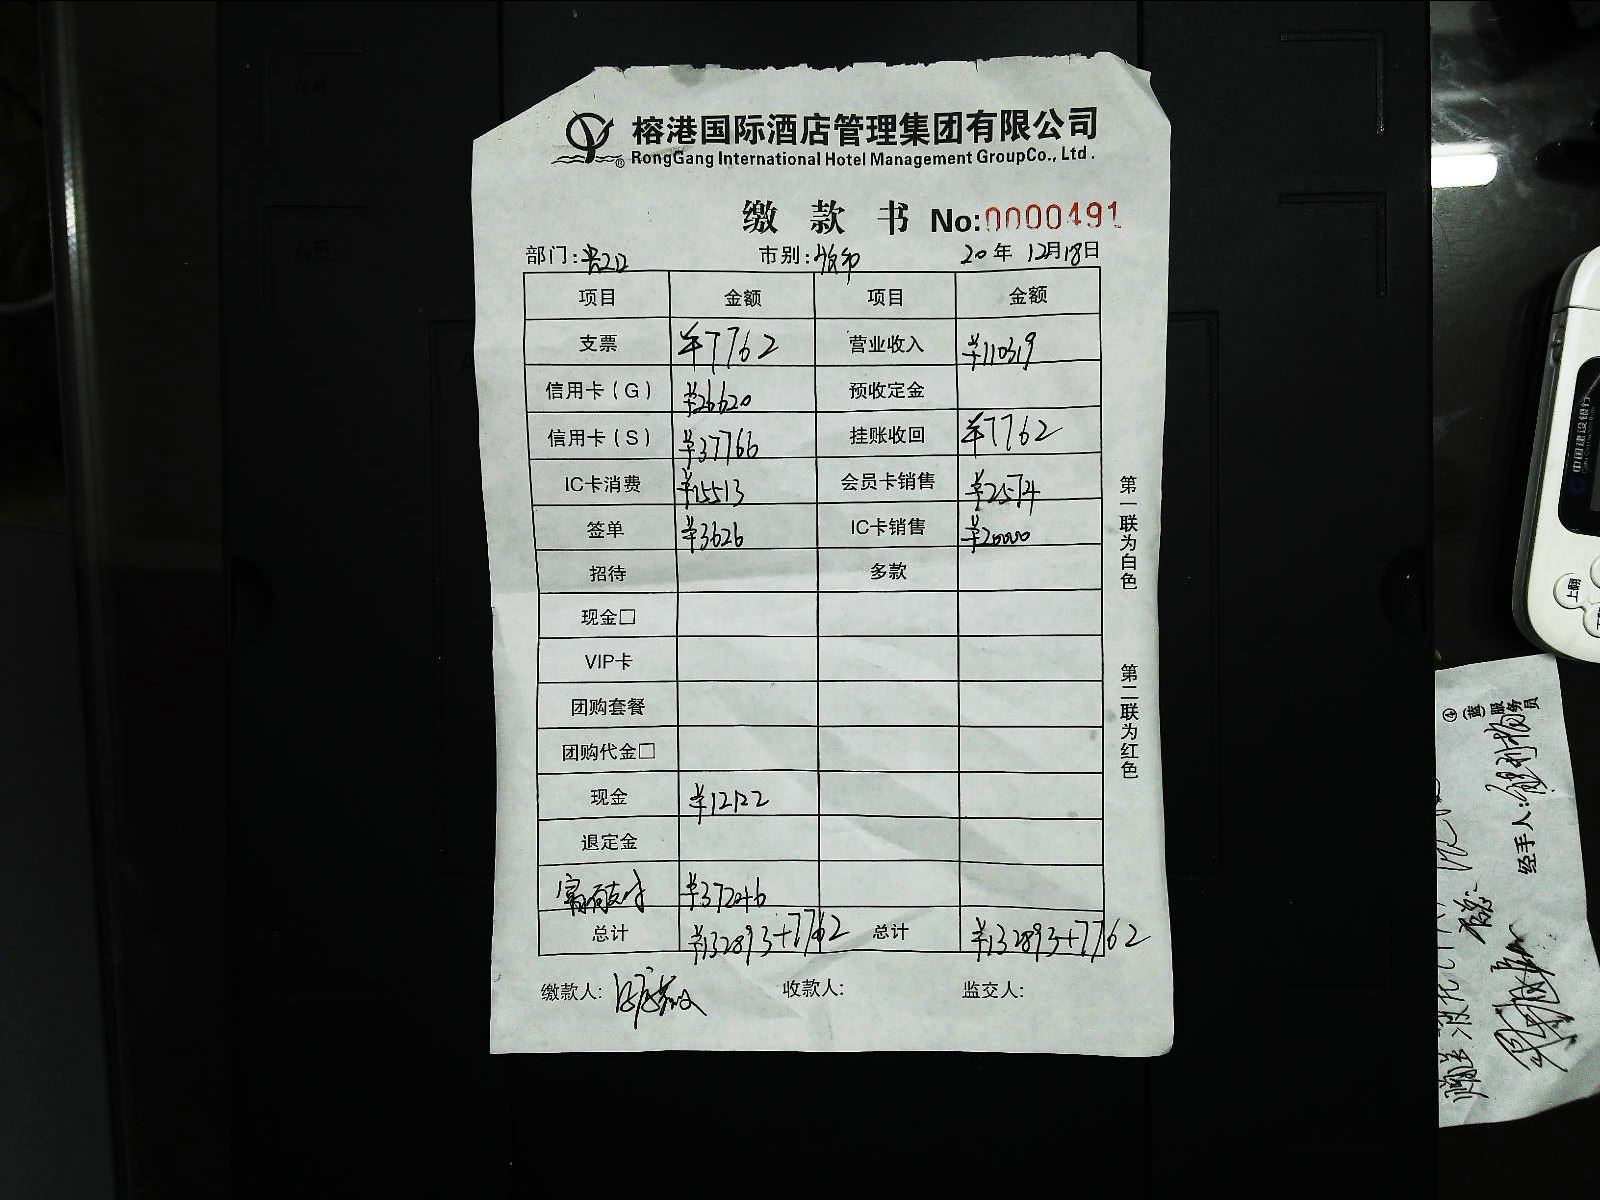 榕港国际酒店管理集团有限公司
RongGang International Hotel Management GroupCo., Ltd.
缴款书 No:0000491
部门: 市别: 20年 12月18日
项目 金额 项目 金额
支票 ¥7762 营业收入 ¥110319
信用卡(G) ¥26620 预收定金
信用卡(S) ¥37766 挂账收回 ¥7762
IC卡消费 ¥15513 会员卡销售 ¥2574
签单 ¥3626 IC卡销售 ¥20000
招待 多款
现金□
VIP卡
团购套餐
团购代金□
现金 ¥12122
退定金
富有支付 ¥37246
总计 ¥132893+7762 总计 ¥132893+7762
缴款人: 收款人: 监交人:
第一联为白色
第二联为红色
中国建设银行
上翻
④(蓝)服务员
经手人: